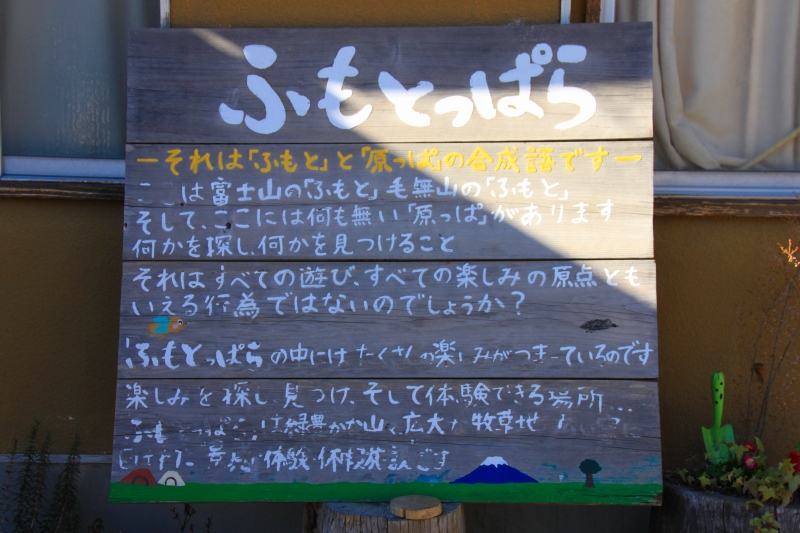 ふもとっぱら
ーそれは「ふもと」と「原っぱ」の合成語ですー
ここは富士山の「ふもと」毛無山の「ふもと」
そして、ここには何も無い「原っぱ」があります
何かを探し、何かを見つけること
それはすべての遊び、すべての楽しみの原点とも
いえる行為ではないのでしょうか？
ふもとっぱらの中にはたくさんの楽しみがつまっているのです
楽しみを探し見つけ、そして体験できる場所…
は緑豊かな山 広大 牧草地
体験 です